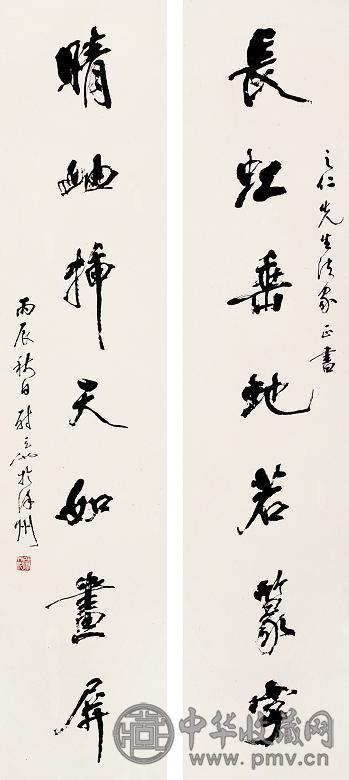 之仁先生法家正書
長虹垂地若篆字
晴岫插天如畫屏
丙辰秋日尉天池於徐州
中华收藏网
www.pmv.cn